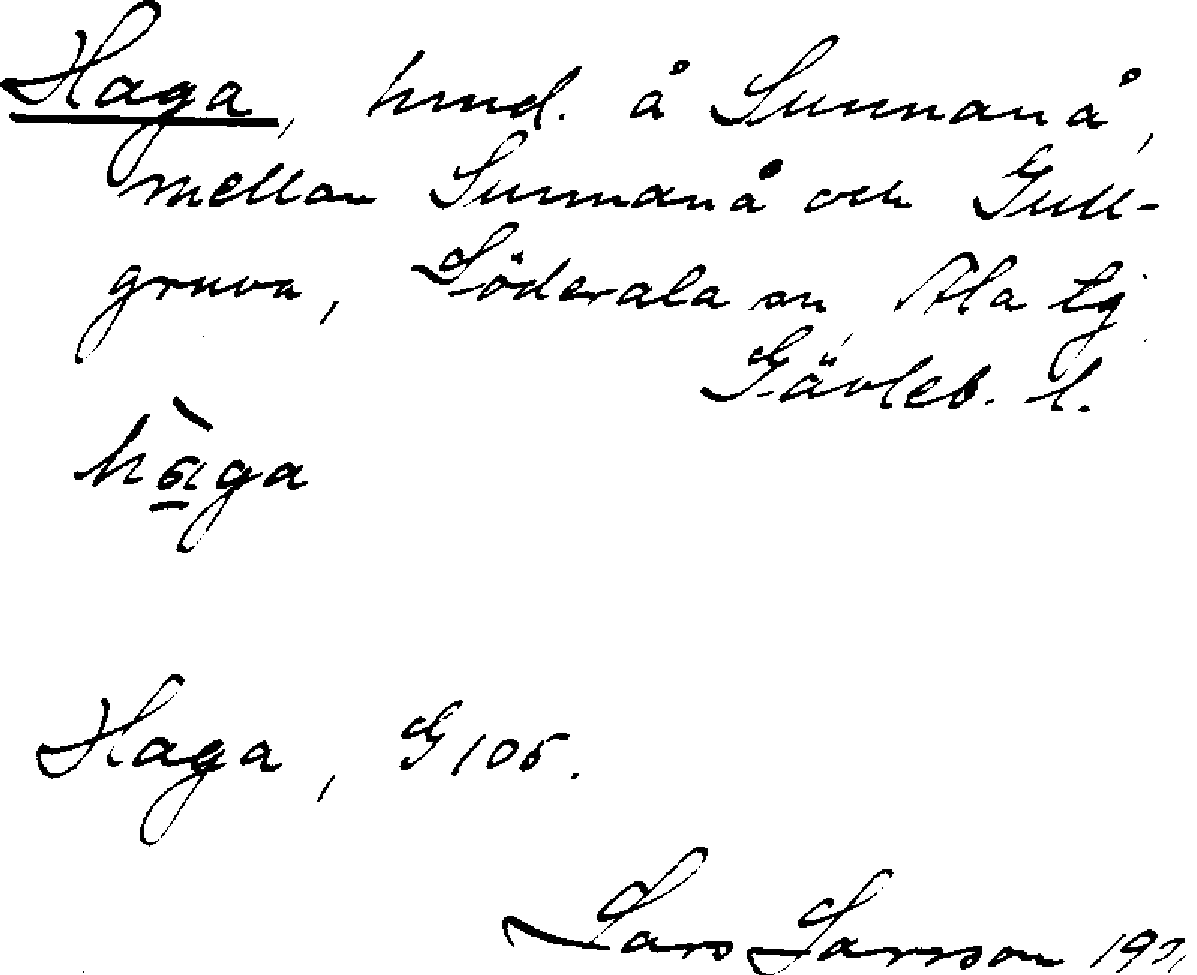 Haga, hmd. å Sunnanå,
mellan Sunnanå och Gull-
gruva, Söderala sn Ala tg
Gävleb. l.
hàga
Haga, G 105.
Lars Larsson